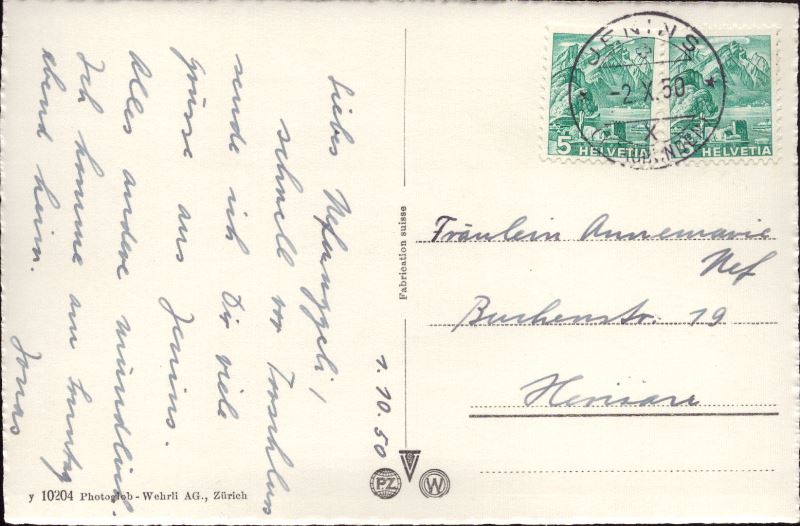 Liebs Nefauggeli!
schnell vor Torschluss
sende ich Dir viele
Grüsse aus Jenins.
Alles andere mündlich.
Ich komme am Sonntag
abend heim.
Jonas
1.10.50
Fabrication suisse
JENINS
-2.X.50
X
5
HELVETIA
HELVETIA
Fräulein Annemarie
Nef
Buchenstr. 19
Herisau
PZ
W
y 10204 Photoglob-Wehrli AG., Zürich